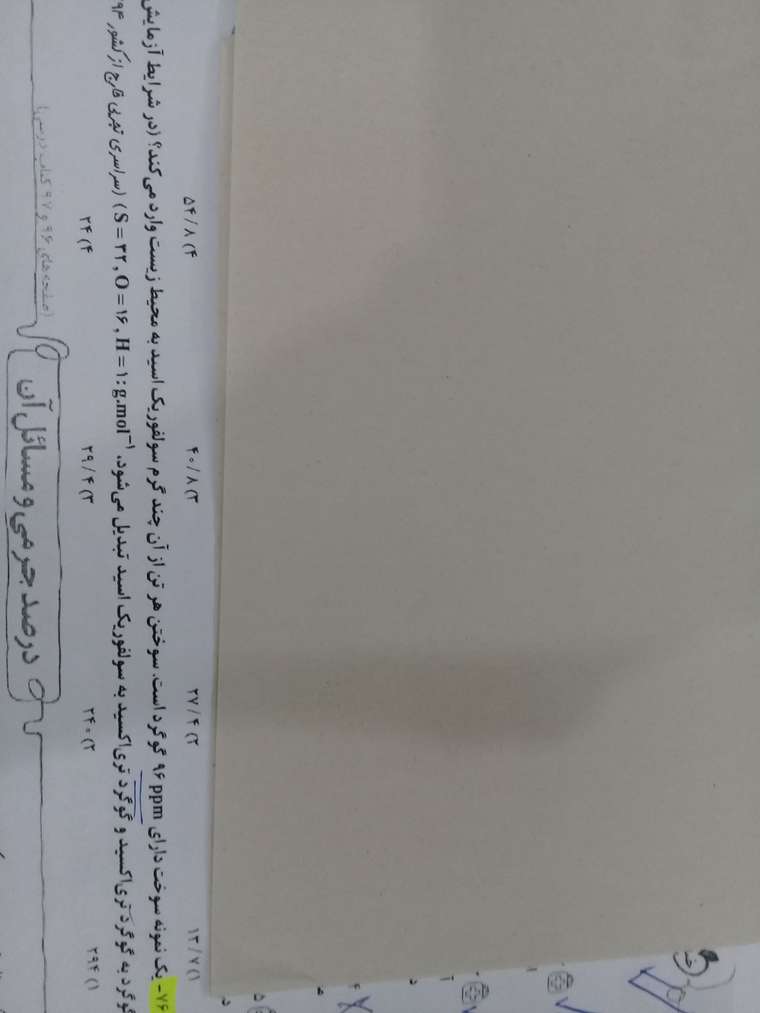 ۱) ۱۳/۷ ۲) ۲۷/۴ ۳) ۴۰/۸ ۴) ۵۴/۸
۷۶- یک نمونه سوخت دارای ۹۶ ppm گوگرد است. سوختن هر تن از آن چند گرم سولفوریک اسید به محیط زیست وارد می‌کند؟ (در شرایط آزمایش
گوگرد به گوگرد تری‌اکسید و گوگرد تری‌اکسید به سولفوریک اسید تبدیل می‌شود. (S = ۳۲, O = ۱۶, H = ۱: g.mol⁻¹) (سراسری تجربی خارج از کشور ۹۴
۱) ۲۹۴ ۲) ۲۴۰ ۳) ۲۹/۴ ۴) ۲۴
درصد جرمی و مسائل آن
(صفحه‌های ۹۶ و ۹۷ کتاب درسی)